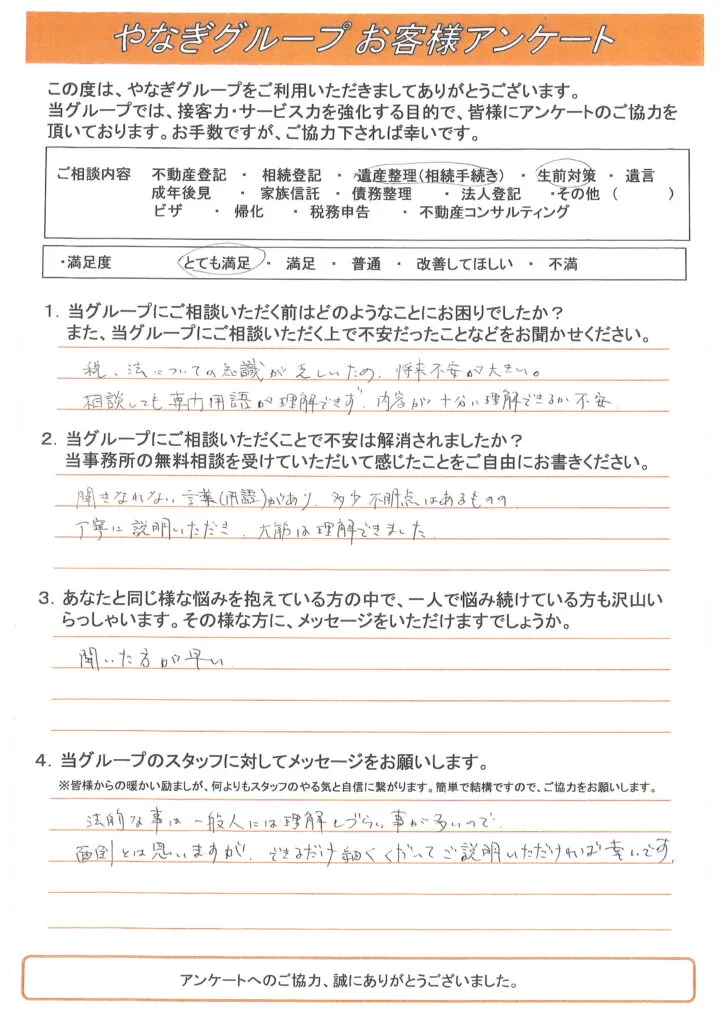 やなぎグループ お客様アンケート
この度は、やなぎグループをご利用いただきましてありがとうございます。
当グループでは、接客力・サービス力を強化する目的で、皆様にアンケートのご協力を
頂いております。お手数ですが、ご協力下されば幸いです。
ご相談内容 不動産登記 ・ 相続登記 ・ 遺産整理(相続手続き) ・ 生前対策 ・ 遺言
成年後見 ・ 家族信託 ・ 債務整理 ・ 法人登記 ・その他 ( )
ビザ ・ 帰化 ・ 税務申告 ・ 不動産コンサルティング
・満足度 とても満足 ・ 満足 ・ 普通 ・ 改善してほしい ・ 不満
1. 当グループにご相談いただく前はどのようなことにお困りでしたか?
また、当グループにご相談いただく上で不安だったことなどをお聞かせください。
税、法についての知識が乏しいため、将来不安が大きい。
相談しても専門用語が理解できず、内容が十分に理解できるか不安
2. 当グループにご相談いただくことで不安は解消されましたか?
当事務所の無料相談を受けていただいて感じたことをご自由にお書きください。
聞きなれない言葉(用語)があり、多少不明点はあるものの、
丁寧に説明いただき、大筋は理解できました
3. あなたと同じ様な悩みを抱えている方の中で、一人で悩み続けている方も沢山い
らっしゃいます。その様な方に、メッセージをいただけますでしょうか。
聞いた方が早い
4. 当グループのスタッフに対してメッセージをお願いします。
※皆様からの暖かい励ましが、何よりもスタッフのやる気と自信に繋がります。簡単で結構ですので、ご協力をお願いします。
法的な事は一般人には理解しづらい事が多いので、
面倒とは思いますが、できるだけ細くくだいてご説明いただければ幸いです。
アンケートへのご協力、誠にありがとうございました。